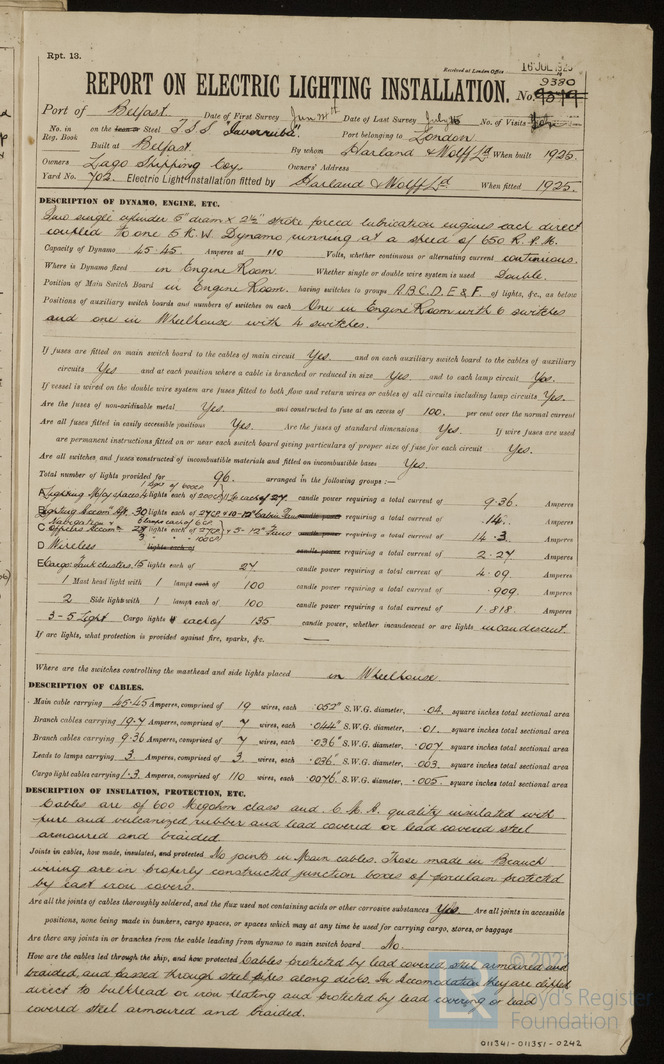 Rpt. 13.
Received at London Office 16 JUL 1925
REPORT ON ELECTRIC LIGHTING INSTALLATION. No. 9380
Port of Belfast Date of First Survey Date of Last Survey July No. of Visits
No. in Reg. Book on the Steel T.S.S "Inverruba" Port belonging to London
Built at Belfast By whom Harland & Wolff Ld When built 1925.
Owners Lago Shipping Coy. Owners' Address
Yard No. 702. Electric Light Installation fitted by Harland & Wolff Ld When fitted 1925.
DESCRIPTION OF DYNAMO, ENGINE, ETC.
Two single cylinder 5" diam x 2½" stroke forced lubrication engines each direct
coupled to one 5 K.W. Dynamo running at a speed of 650 R.P.M.
Capacity of Dynamo 45.45 Amperes at 110 Volts, whether continuous or alternating current continuous.
Where is Dynamo fixed in Engine Room. Whether single or double wire system is used Double.
Position of Main Switch Board in Engine Room. having switches to groups A.B.C.D.E & F. of lights, &c., as below
Positions of auxiliary switch boards and numbers of switches on each One in Engine Room with 6 switches
and one in Wheelhouse with 4 switches.
If fuses are fitted on main switch board to the cables of main circuit Yes. and on each auxiliary switch board to the cables of auxiliary
circuits Yes and at each position where a cable is branched or reduced in size Yes. and to each lamp circuit Yes.
If vessel is wired on the double wire system are fuses fitted to both flow and return wires or cables of all circuits including lamp circuits Yes.
Are the fuses of non-oxidisable metal Yes. and constructed to fuse at an excess of 100. per cent over the normal current
Are all fuses fitted in easily accessible positions Yes. Are the fuses of standard dimensions Yes. If wire fuses are used
are permanent instructions fitted on or near each switch board giving particulars of proper size of fuse for each circuit Yes.
Are all switches and fuses constructed of incombustible materials and fitted on incombustible bases Yes.
Total number of lights provided for 96. arranged in the following groups :—
A Lighting Mchy spaces 4 lights each of 200CP candle power requiring a total current of 9.36. Amperes
B Lighting Accom Aft. 30 lights each of 27CP & 10-12" Cabin Fans requiring a total current of 14. Amperes
C Navigation & Officers Accom 24 lights each of 27CP & 5-12" Fans requiring a total current of 14.3. Amperes
D Wireless requiring a total current of 2.27 Amperes
E Cargo Tank clusters. 15 lights each of 27 candle power requiring a total current of 4.09. Amperes
1 Mast head light with 1 lamp each of 100 candle power requiring a total current of .909. Amperes
2 Side light with 1 lamp each of 100 candle power requiring a total current of 1.818. Amperes
3-5 Light Cargo lights each of 135 candle power, whether incandescent or arc lights incandescent.
If arc lights, what protection is provided against fire, sparks, &c. —
Where are the switches controlling the masthead and side lights placed in Wheelhouse.
DESCRIPTION OF CABLES.
Main cable carrying 45.45 Amperes, comprised of 19 wires, each .052" S.W.G. diameter, .04. square inches total sectional area
Branch cables carrying 19.7 Amperes, comprised of 7 wires, each .044" S.W.G. diameter, .01. square inches total sectional area
Branch cables carrying 9.36 Amperes, comprised of 7 wires, each .036" S.W.G. diameter, .007 square inches total sectional area
Leads to lamps carrying 3. Amperes, comprised of 3. wires, each .036" S.W.G. diameter, .003 square inches total sectional area
Cargo light cables carrying 1.3 Amperes, comprised of 110 wires, each .0076" S.W.G. diameter, .005. square inches total sectional area
DESCRIPTION OF INSULATION, PROTECTION, ETC.
Cables are of 600 Megohm class and C.M.A. quality insulated with
pure and vulcanized rubber and lead covered or lead covered steel
armoured and braided.
Joints in cables, how made, insulated, and protected No joints in Main cables. Those made in Branch
wiring are in properly constructed junction boxes of porcelain protected
by cast iron covers.
Are all the joints of cables thoroughly soldered, and the flux used not containing acids or other corrosive substances Yes. Are all joints in accessible
positions, none being made in bunkers, cargo spaces, or spaces which may at any time be used for carrying cargo, stores, or baggage
Are there any joints in or branches from the cable leading from dynamo to main switch board No.
How are the cables led through the ship, and how protected Cables protected by lead covered steel armoured and
braided, and passed through steel pipes along decks. In Accomodation they are clipped
direct to bulkhead or iron plating and protected by lead covering or lead
covered steel armoured and braided.
© 2021
Lloyd's Register
Foundation
011341-011351-0242